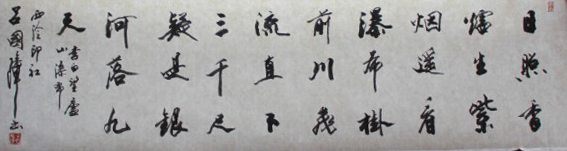 日照香
爐生紫
烟遥看
瀑布掛
前川飛
流直下
三千尺
疑是銀
河落九
天
李白望廬
山瀑布
西泠印社
吕國璋书